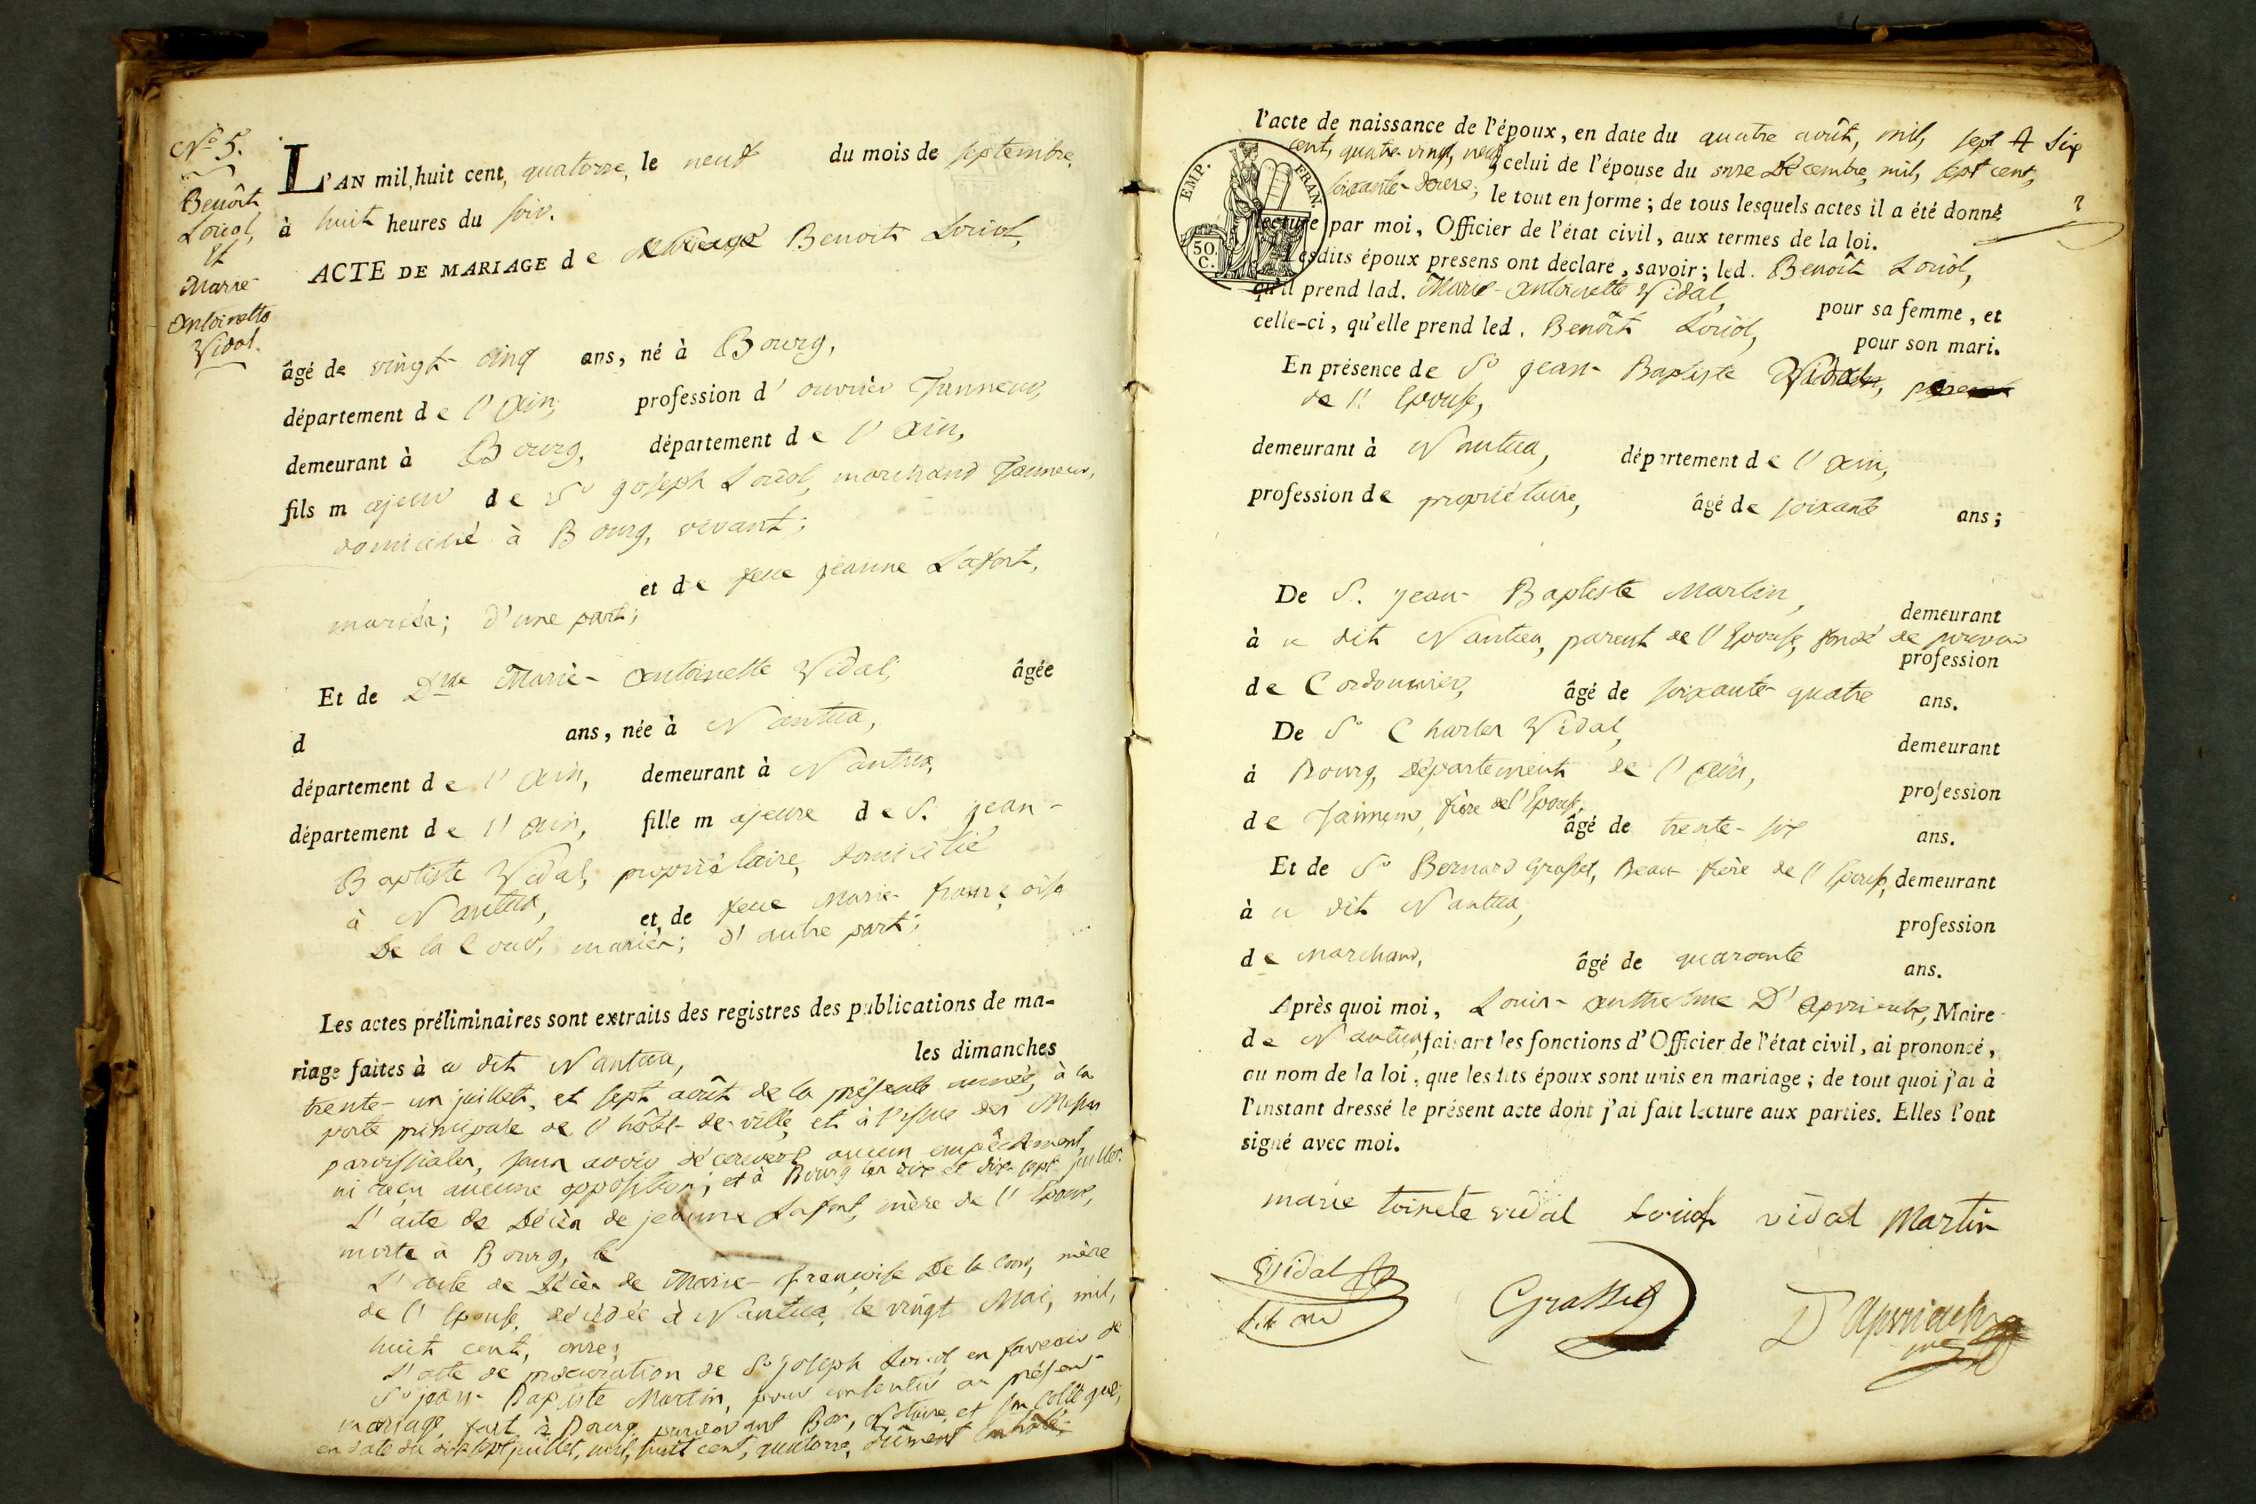 N.o 5.
Benoît
Loriol,
Et
Marie-
Antoinette
Vidal.
L'AN mil, huit cent, quatorze, le neuf du mois de septembre,
à huit heures du soir.
ACTE DE MARIAGE de Benoit Loriol,
âgé de vingt-cinq ans, né à Bourg,
département de l'Ain, profession d'ouvrier Tanneur,
demeurant à Bourg, département de l'Ain,
fils majeur de Sr joseph Loriol, marchand Tanneur,
domicilié à Bourg, vivant;
et de feue jeanne Lafont,
mariés; d'une part;
Et de Dlle Marie-Antoinette Vidal, âgée
d ans, née à Nantua,
département de l'Ain, demeurant à Nantua,
département de l'Ain, fille majeure de S. jean-
Baptiste Vidal, propriétaire, domicilié
à Nantua, et de feue Marie-françoise
De la Cour, mariés; d'autre part;
Les actes préliminaires sont extraits des registres des publications de ma-
riage faites à ce dit Nantua, les dimanches
trente-un juillet, et sept août de la présente année, à la
porte principale de l'hôtel-de-ville, et à l'issue des Messes
paroissiales, sans avoir découvert aucun empêchement,
ni reçu aucune opposition; et à Bourg les dix et dix-sept juillet.
L'acte de Décès de jeanne Lafont, mère de l'Epoux,
morte à Bourg, le
L'acte de Décès de Marie-françoise De la Cour, mère
de l'Epouse, décédée à Nantua, le vingt Mai, mil,
huit cent, onze;
L'acte de procuration de Sr joseph Loriol en faveur de
Sr jean-Baptiste Martin, pour consentir au présent
mariage, fait à Bourg, pardevant Notaire, et son Collègue,
en date du dix-sept juillet, mil, huit cent, quatorze, dûment
l'acte de naissance de l'époux, en date du quatre août, mil, sept
cent, quatre-vingt, neuf, celui de l'épouse du onze Décembre, mil, sept cent,
soixante-douze; le tout en forme; de tous lesquels actes il a été donné
lecture par moi, Officier de l'état civil, aux termes de la loi.
EMP. FRAN.
50
C.
Lesdits époux présens ont déclaré, savoir; led. Benoît Loriol,
qu'il prend lad. Marie-Antoinette Vidal, pour sa femme, et
celle-ci, qu'elle prend led. Benoît Loriol, pour son mari.
En présence de Sr jean-Baptiste Vidal, père
de l'Epouse,
demeurant à Nantua, département de l'Ain,
profession de propriétaire, âgé de soixante ans;
De S. jean-Baptiste Martin, demeurant
à ce dit Nantua, parent de l'Epouse, fondé de pouvoir profession
de Cordonnier, âgé de soixante-quatre ans.
De Sr Charles Vidal, demeurant
à Bourg, Département de l'Ain, profession
de Tanneur, frère de l'Epouse, âgé de trente-six ans.
Et de Sr Bernard Grasset, Beau-frère de l'Epouse, demeurant
à ce dit Nantua, profession
de marchand, âgé de quarante ans.
Après quoi moi, Louis-Anthelme D'Apvrieulx, Maire
de Nantua, faisant les fonctions d'Officier de l'état civil, ai prononcé,
au nom de la loi, que lesdits époux sont unis en mariage; de tout quoi j'ai à
l'instant dressé le présent acte dont j'ai fait lecture aux parties. Elles l'ont
signé avec moi.
marie toinete vidal Loriol vidal Martin
Vidal
Grasset
D'Apvrieulx